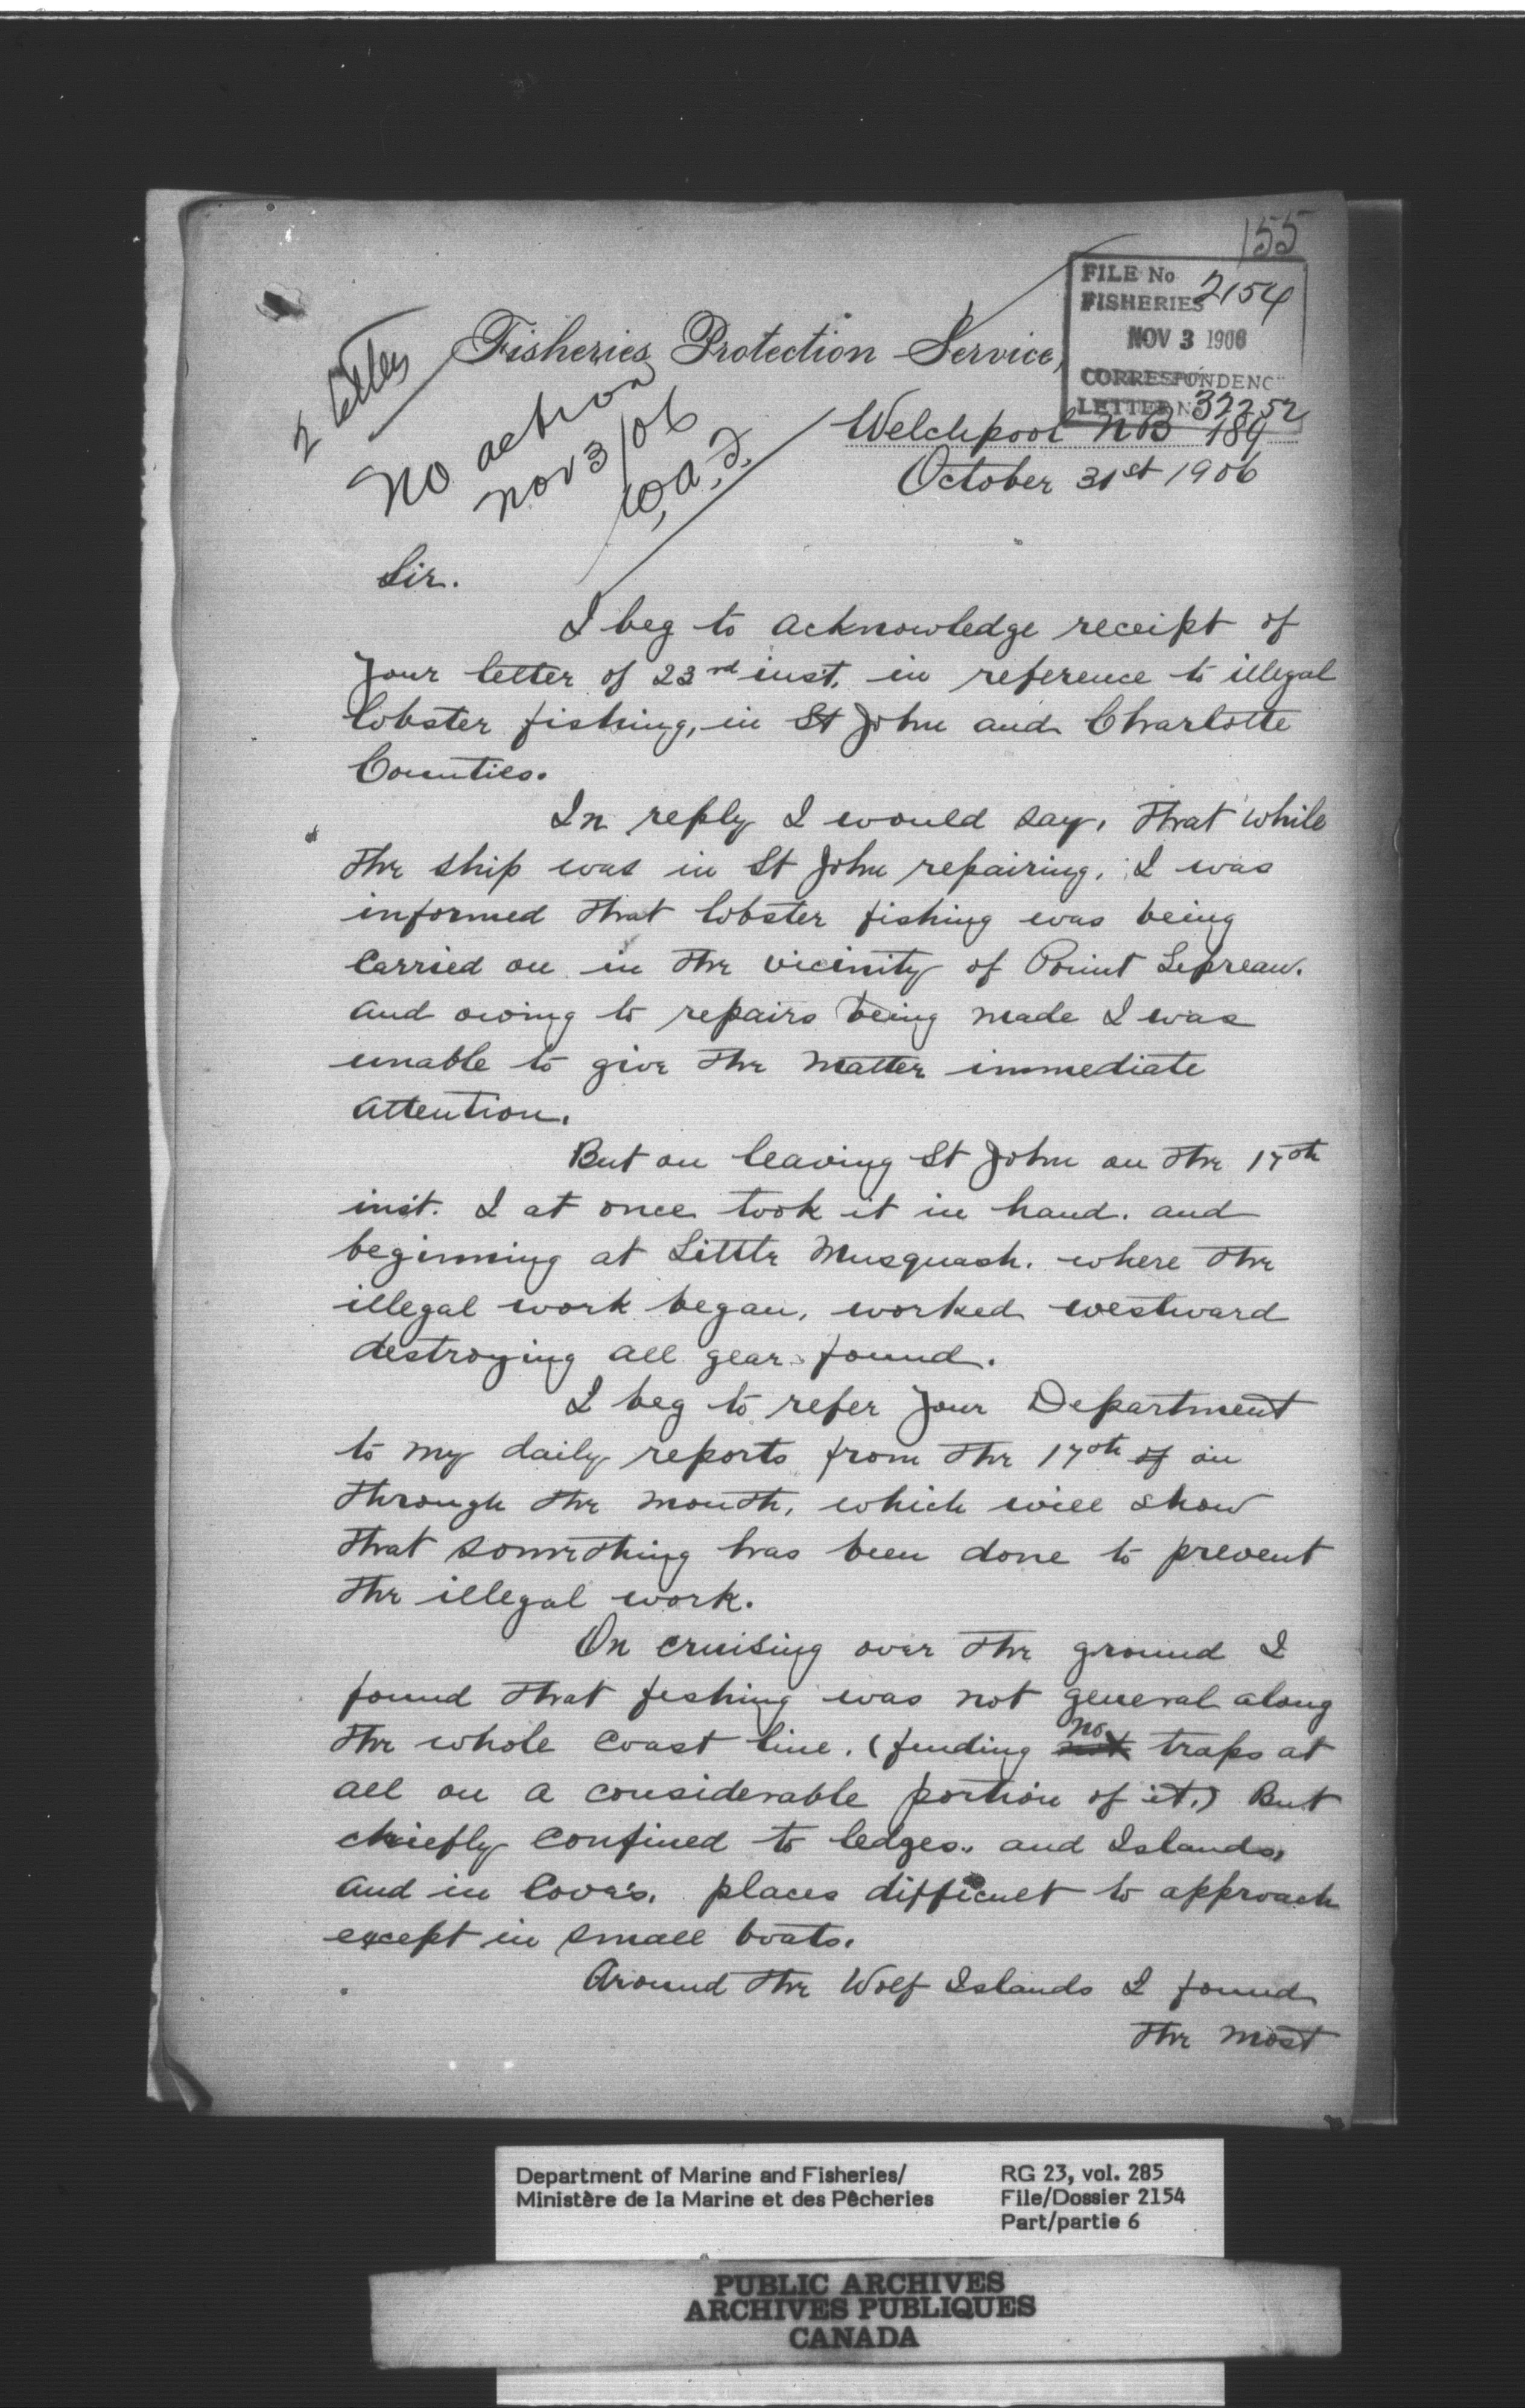 155
FILE No
FISHERIES 2154
NOV 3 1906
CORRESPONDENC
LETTER N 32252
2 letters
Fisheries Protection Service,
No action
Nov 3/06
Welchpool NB 189
October 31st 1906
Sir.
I beg to acknowledge receipt of
your letter of 23rd inst. in reference to illegal
lobster fishing, in St John and Charlotte
Counties.
In reply I would say, that while
the ship was in St John repairing, I was
informed that lobster fishing was being
carried on in the vicinity of Point Lepreau.
and owing to repairs being made I was
unable to give the matter immediate
attention.
But on leaving St John on the 17th
inst. I at once took it in hand. and
beginning at Little Musquash. where the
illegal work began, worked westward
destroying all gear found.
I beg to refer your Department
to my daily reports from the 17th of on
through the month, which will show
that something has been done to prevent
the illegal work.
On cruising over the ground I
found that fishing was not general along
the whole coast line. (finding not no traps at
all on a considerable portion of it.) But
chiefly confined to ledges, and Islands,
and in Cove's, places difficult to approach
except in small boats.
Around the Wolf Islands I found
the most
Department of Marine and Fisheries/
Ministère de la Marine et des Pêcheries
RG 23, vol. 285
File/Dossier 2154
Part/partie 6
PUBLIC ARCHIVES
ARCHIVES PUBLIQUES
CANADA